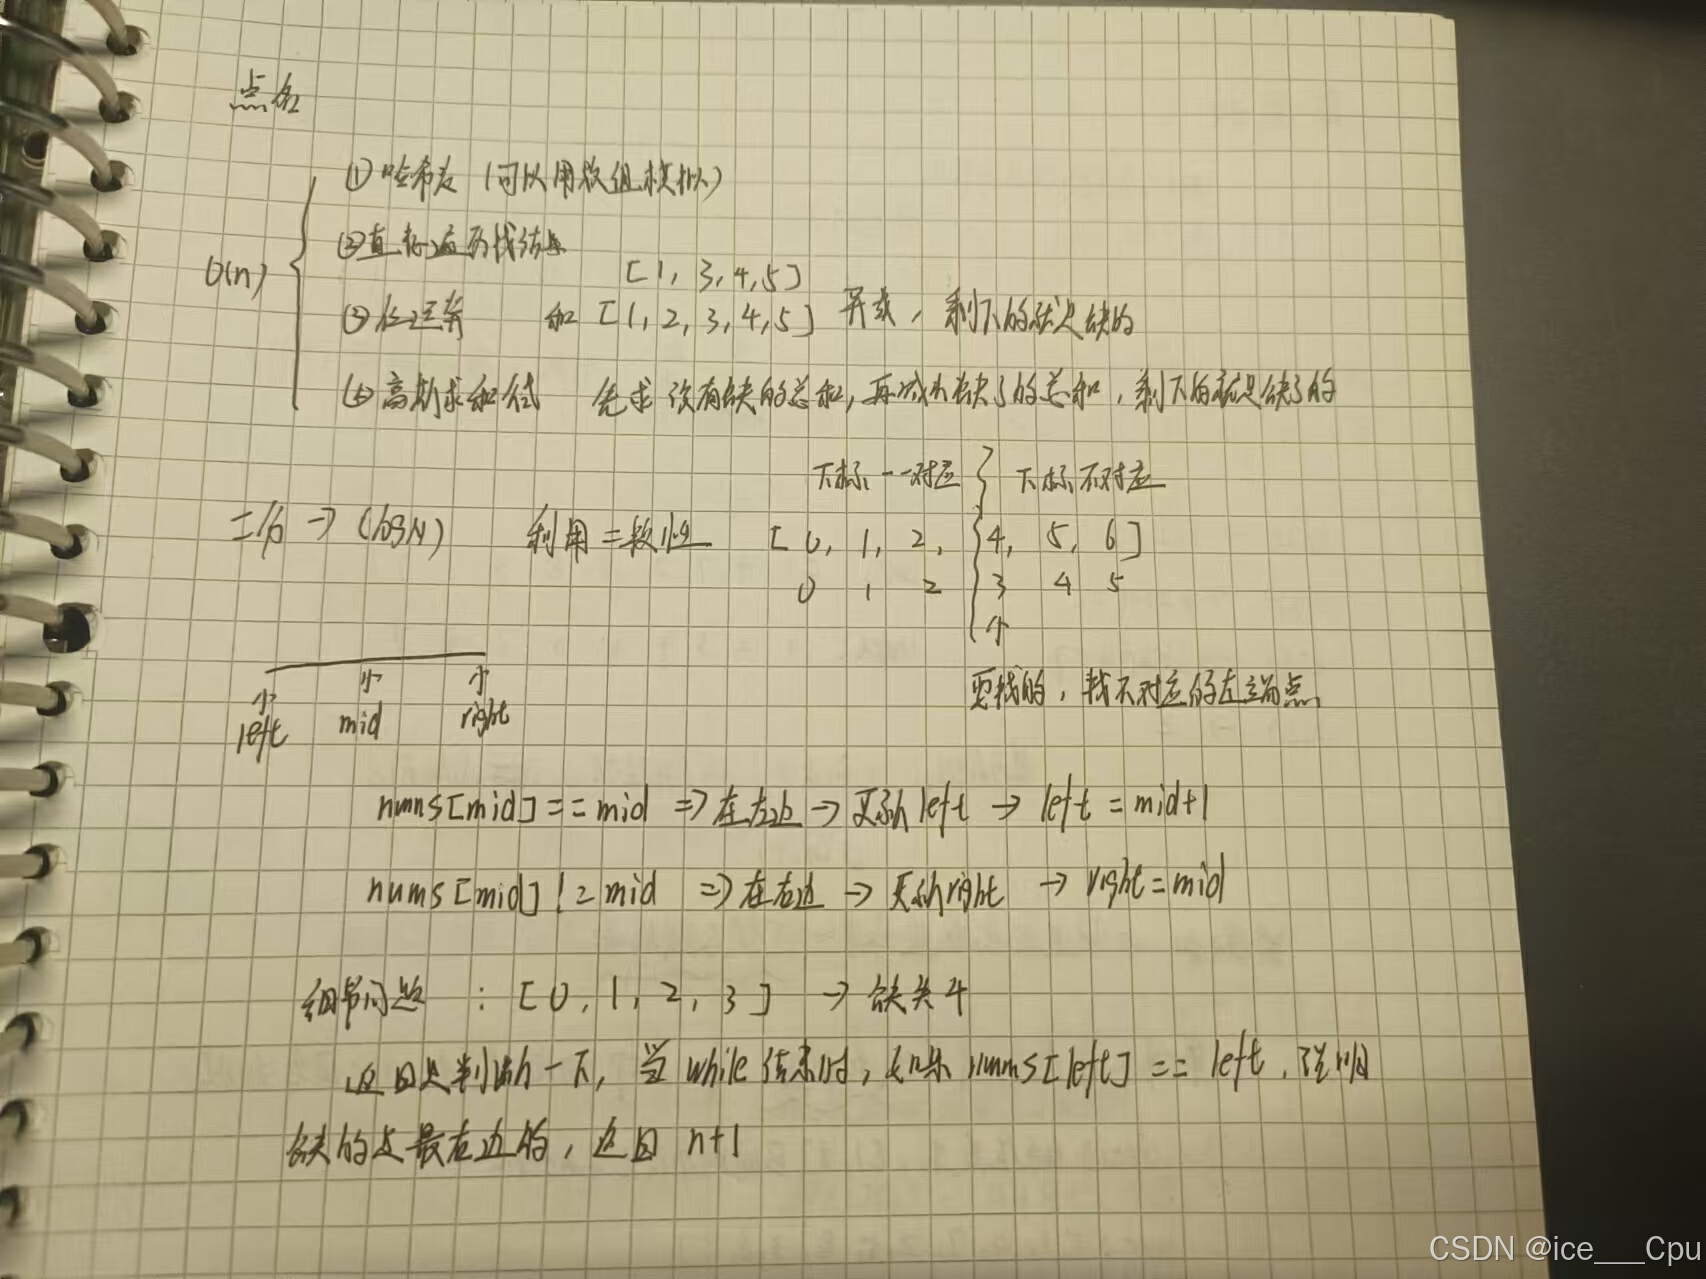 点名
O(n)
①哈希表（可以用数组模拟）
②直接遍历找结果
[1, 3, 4, 5]
③位运算 和[1, 2, 3, 4, 5]异或，剩下的就是缺的
④高斯求和公式 先求没有缺的总和，再减去缺了的总和，剩下的就是缺了的
下标一一对应 下标不对应
二分→(logN) 利用二段性 [0, 1, 2, 4, 5, 6]
0 1 2 3 4 5
↑
要找的，找不对应的左端点
↑ ↑ ↑
left mid right
nums[mid] == mid => 在左边 → 更新left → left = mid+1
nums[mid] != mid => 在右边 → 更新right → right = mid
细节问题：[0, 1, 2, 3] → 缺失4
返回是判断一下，当while结束时，如果nums[left] == left，说明
缺的是最右边的，返回 n+1
CSDN @ice___Cpu